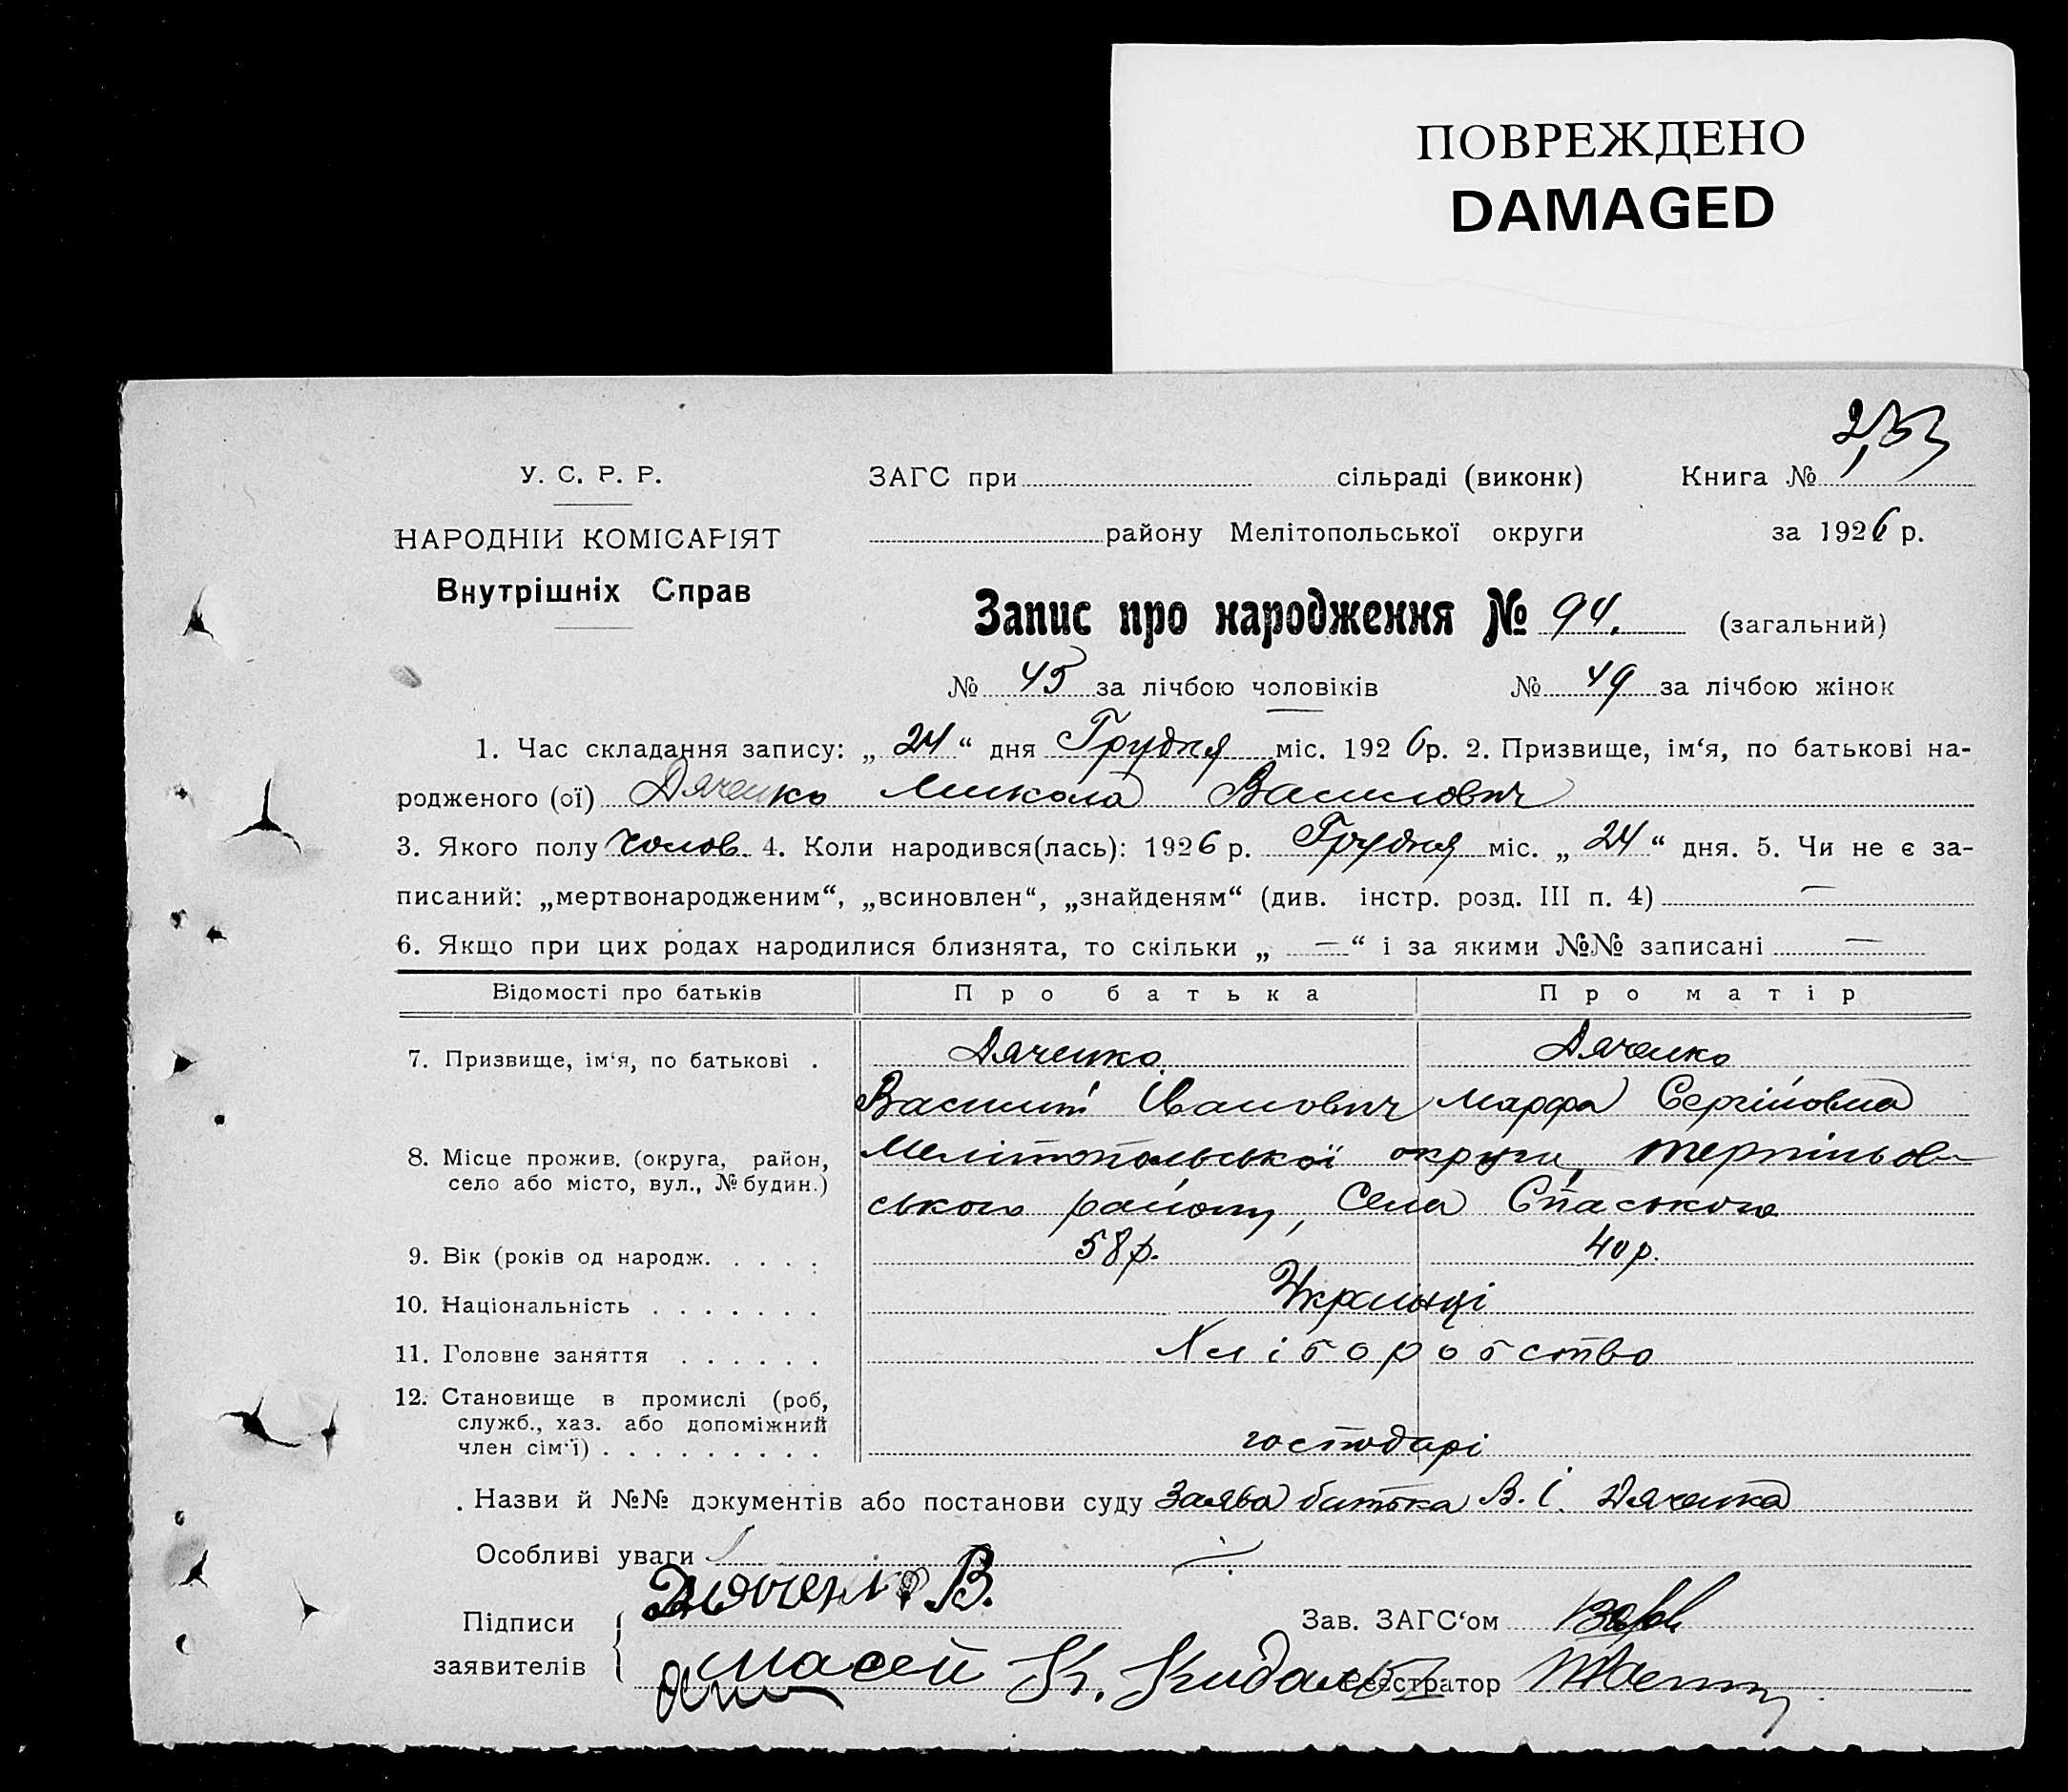 ПОВРЕЖДЕНО
DAMAGED
У. С. Р. Р.
НАРОДНІЙ КОМІСАРІЯТ
Внутрішніх Справ
ЗАГС при сільраді (виконк) Книга №
району Мелітопольської округи за 1926 р.
Запис про народження № 94. (загальний)
№ 45 за лічбою чоловіків № 49 за лічбою жінок
1. Час складання запису: „ 24 “ дня Грудня міс. 1926 р. 2. Призвище, ім‘я, по батькові на-
родженого (ої) Дяченко Микола Василович
3. Якого полу чолов. 4. Коли народився(лась): 1926 р. Грудня міс. „ 24 “ дня. 5. Чи не є за-
писаний: „мертвонародженим“, „всиновлен“, „знайденям“ (див. інстр. розд. III п. 4) —
6. Якщо при цих родах народилися близнята, то скільки „ — “ і за якими №№ записані —
Відомості про батьків Про батька Про матір
7. Призвище, ім‘я, по батькові . Дяченко Дяченко
Василий Іванович Марфа Сергійовна
8. Місце прожив. (округа, район, Мелітопольської округи, Терпіньов-
село або місто, вул., № будин.) ського району, Села Спаського
9. Вік (років од народж. . . . . 58 р. 40 р.
10. Національність . . . . . . . Українці
11. Головне заняття . . . . . . Хліборобство
12. Становище в промислі (роб,
служб., хаз. або допоміжний
член сім‘ї) . . . . . . . . . господарі
. Назви й №№ документів або постанови суду Заява батька В. І. Дяченка
Особливі уваги
Дяченко В.
Підписи Зав. ЗАГС‘ом
заявителів К. Реєстратор